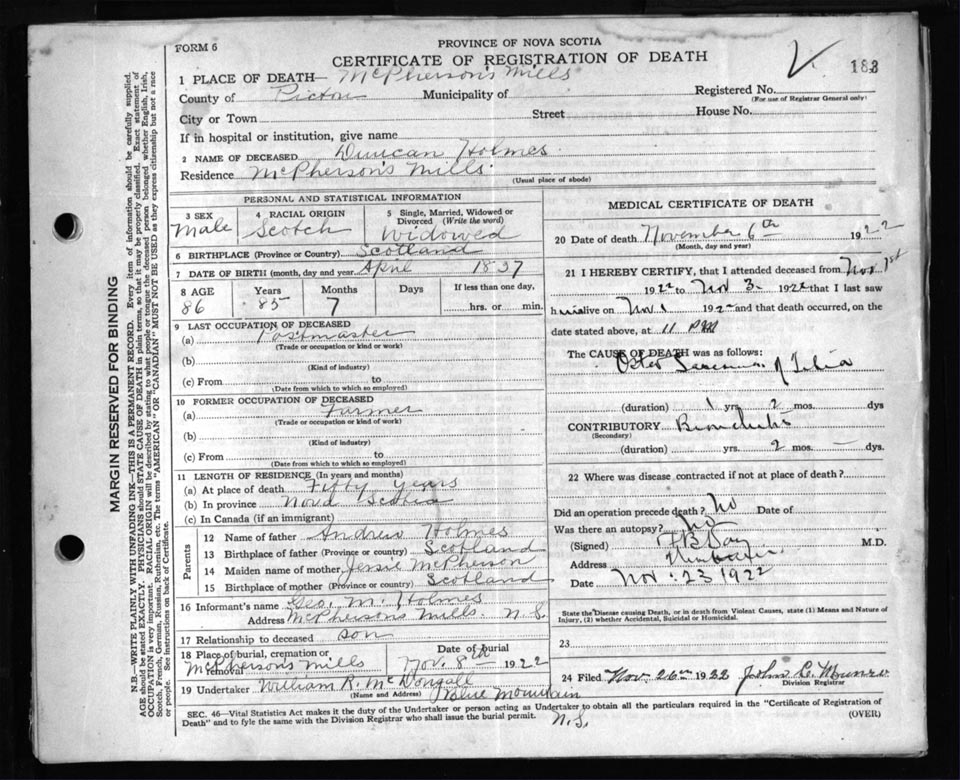 FORM 6
PROVINCE OF NOVA SCOTIA
CERTIFICATE OF REGISTRATION OF DEATH
183
1 PLACE OF DEATH— McPherson's Mills
County of Pictou Municipality of
Registered No.
(For use of Registrar General only)
City or Town Street House No.
If in hospital or institution, give name
2 NAME OF DECEASED Duncan Holmes.
Residence McPherson's Mills
(Usual place of abode)
PERSONAL AND STATISTICAL INFORMATION
3 SEX Male
4 RACIAL ORIGIN Scotch
5 Single, Married, Widowed or Divorced (Write the word) Widowed
6 BIRTHPLACE (Province or Country) Scotland
7 DATE OF BIRTH (month, day and year) April 1837
8 AGE Years Months Days If less than one day,
86 85 7 hrs. or min.
9 LAST OCCUPATION OF DECEASED
(a) Postmaster
(Trade or occupation or kind of work)
(b)
(Kind of industry)
(c) From to
(Date from which to which so employed)
10 FORMER OCCUPATION OF DECEASED
(a) Farmer
(Trade or occupation or kind of work)
(b)
(Kind of industry)
(c) From to
(Date from which to which so employed)
11 LENGTH OF RESIDENCE (In years and months)
(a) At place of death Fifty Years
(b) In province Nova Scotia
(c) In Canada (if an immigrant)
Parents
12 Name of father Andrew Holmes
13 Birthplace of father (Province or country) Scotland
14 Maiden name of mother Jessie McPherson
15 Birthplace of mother (Province or country) Scotland
16 Informant's name Geo. M. Holmes
Address McPherson's Mills. N.S.
17 Relationship to deceased son
18 Place of burial, cremation or removal McPherson's Mills
Date of burial Nov. 8th 1922
19 Undertaker William R. McDougall
(Name and Address) Blue Mountain
N.S.
MEDICAL CERTIFICATE OF DEATH
20 Date of death November 6th 1922
(Month, day and year)
21 I HEREBY CERTIFY, that I attended deceased from Nov 1st
1922 to Nov 3. 1922 that I last saw
him alive on Nov 1 1922 and that death occurred, on the
date stated above, at 11 PM
The CAUSE OF DEATH was as follows:
of Tibia
(duration) 1 yrs. 2 mos. dys
CONTRIBUTORY Bronchitis
(Secondary)
(duration) yrs. 2 mos. — dys.
22 Where was disease contracted if not at place of death?
Did an operation precede death? No Date of
Was there an autopsy? No
(Signed) M.D.
Address
Date Nov. 23 1922
State the Disease causing Death, or in death from Violent Causes, state (1) Means and Nature of
Injury, (2) whether Accidental, Suicidal or Homicidal.
23
24 Filed Nov. 26th 1922 John C. Munro
Division Registrar
SEC. 46—Vital Statistics Act makes it the duty of the Undertaker or person acting as Undertaker to obtain all the particulars required in the "Certificate of Registration of
Death" and to fyle the same with the Division Registrar who shall issue the burial permit.
(OVER)
MARGIN RESERVED FOR BINDING
N.B.—WRITE PLAINLY WITH UNFADING INK—THIS IS A PERMANENT RECORD. Every item of information should be carefully supplied.
AGE should be stated EXACTLY. PHYSICIANS should STATE CAUSE OF DEATH in plain terms, so that it may be properly classified. Exact statement of
OCCUPATION is very important. RACIAL ORIGIN will be described by stating to what people or tongue the deceased person belonged whether English, Irish,
Scotch, French, German, Russian, Ruthenian, etc. The terms "AMERICAN" OR "CANADIAN" MUST NOT BE USED as they express citizenship but not a race
or people. See instructions on back of Certificate.